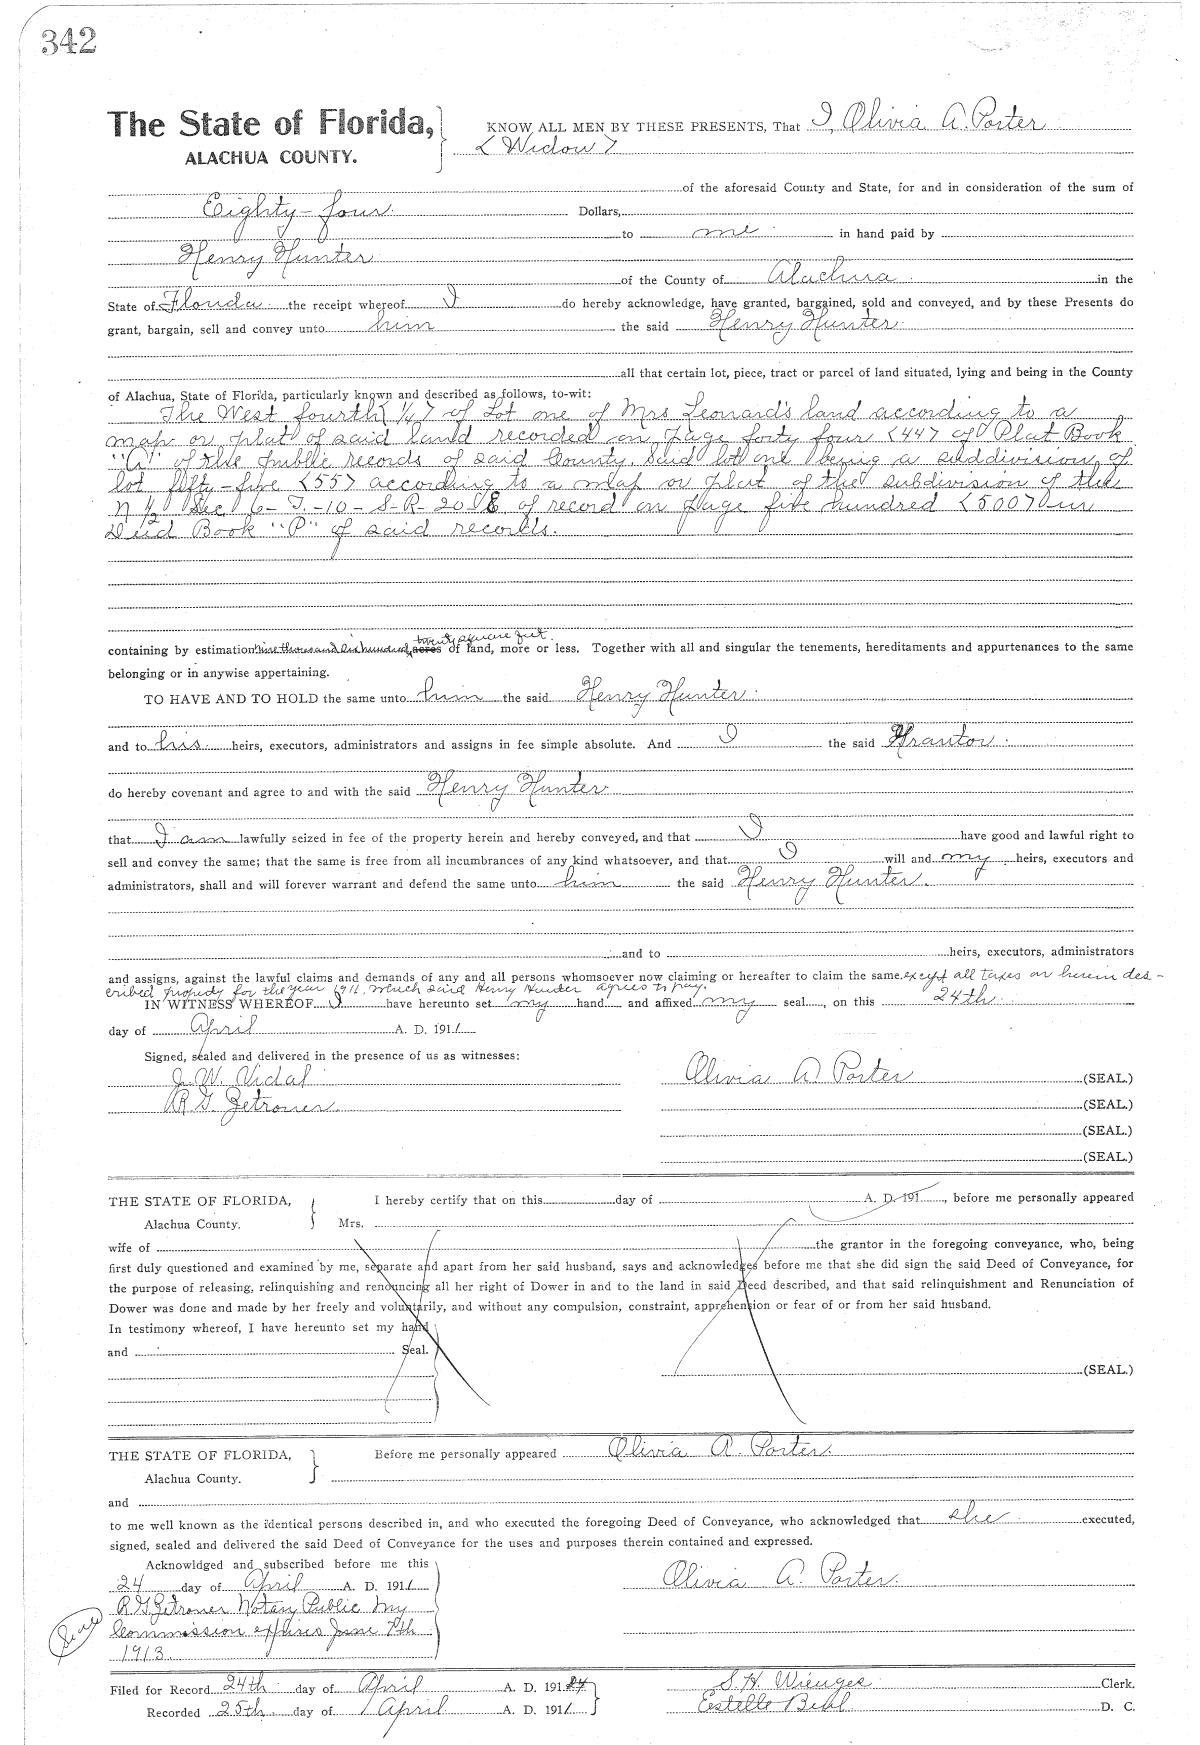 342
The State of Florida,
ALACHUA COUNTY.
KNOW ALL MEN BY THESE PRESENTS, That I, Olivia A. Porter
<Widow>
of the aforesaid County and State, for and in consideration of the sum of
Eighty-four Dollars,
to me in hand paid by
Henry Hunter
of the County of Alachua in the
State of Florida the receipt whereof I do hereby acknowledge, have granted, bargained, sold and conveyed, and by these Presents do
grant, bargain, sell and convey unto him the said Henry Hunter
all that certain lot, piece, tract or parcel of land situated, lying and being in the County
of Alachua, State of Florida, particularly known and described as follows, to-wit:
The West fourth <1/4> of Lot one of Mrs Leonard's land according to a
map or plat of said land recorded on page forty four <44> of Plat Book
"A" of the public records of said County, said lot one being a subdivision of
lot fifty-five <55> according to a map or plat of the subdivision of the
N 1/2 Sec 6-T.-10-S-R-20 E of record on page five hundred <500> in
Deed Book "P" of said records.
containing by estimation nine thousand six hundred twenty square feet acres of land, more or less. Together with all and singular the tenements, hereditaments and appurtenances to the same
belonging or in anywise appertaining.
TO HAVE AND TO HOLD the same unto him the said Henry Hunter
and to his heirs, executors, administrators and assigns in fee simple absolute. And I the said Grantor
do hereby covenant and agree to and with the said Henry Hunter
that I am lawfully seized in fee of the property herein and hereby conveyed, and that I have good and lawful right to
sell and convey the same; that the same is free from all incumbrances of any kind whatsoever, and that I will and my heirs, executors and
administrators, shall and will forever warrant and defend the same unto him the said Henry Hunter.
and to heirs, executors, administrators
and assigns, against the lawful claims and demands of any and all persons whomsoever now claiming or hereafter to claim the same, except all taxes on herein des-
cribed property for the year 1911, which said Henry Hunter agrees to pay.
IN WITNESS WHEREOF I have hereunto set my hand and affixed my seal, on this 24th
day of April A. D. 1911
Signed, sealed and delivered in the presence of us as witnesses:
J. W. Vidal
Olivia A Porter (SEAL.)
R. G. Zetrouer
(SEAL.)
(SEAL.)
(SEAL.)
THE STATE OF FLORIDA,
Alachua County.
I hereby certify that on this day of A. D. 191 , before me personally appeared
Mrs.
wife of the grantor in the foregoing conveyance, who, being
first duly questioned and examined by me, separate and apart from her said husband, says and acknowledges before me that she did sign the said Deed of Conveyance, for
the purpose of releasing, relinquishing and renouncing all her right of Dower in and to the land in said Deed described, and that said relinquishment and Renunciation of
Dower was done and made by her freely and voluntarily, and without any compulsion, constraint, apprehension or fear of or from her said husband.
In testimony whereof, I have hereunto set my hand
and Seal.
(SEAL.)
THE STATE OF FLORIDA,
Alachua County.
Before me personally appeared Olivia A. Porter.
and
to me well known as the identical persons described in, and who executed the foregoing Deed of Conveyance, who acknowledged that she executed,
signed, sealed and delivered the said Deed of Conveyance for the uses and purposes therein contained and expressed.
Acknowldged and subscribed before me this
24 day of April A. D. 1911
Olivia A. Porter.
R. G. Zetrouer Notary Public my
Commission expires June 7th
1913.
Filed for Record 24th day of April A. D. 191
S. H. Wienges Clerk.
Recorded 25th day of April A. D. 1911
Estelle D. C.